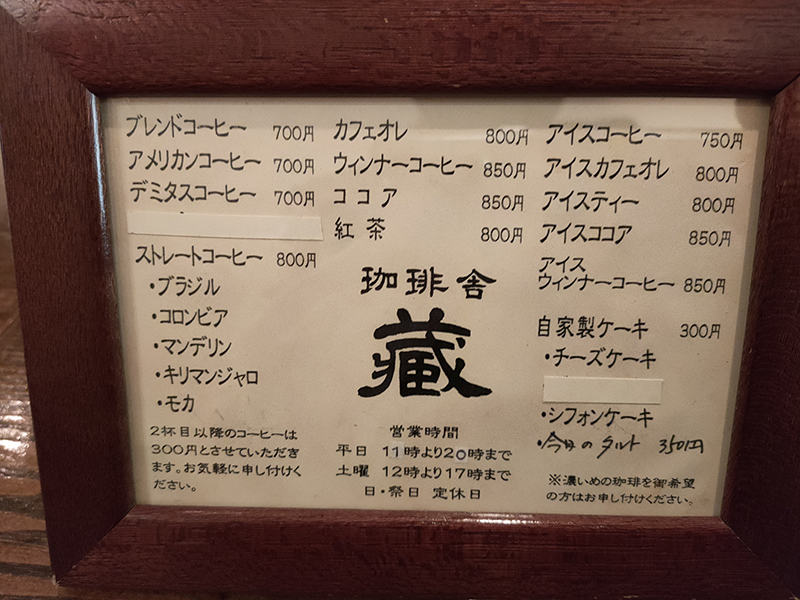 ブレンドコーヒー 700円
アメリカンコーヒー 700円
デミタスコーヒー 700円
ストレートコーヒー 800円
・ブラジル
・コロンビア
・マンデリン
・キリマンジャロ
・モカ
2杯目以降のコーヒーは
300円とさせていただき
ます。お気軽に申し付けく
ださい。
カフェオレ 800円
ウィンナーコーヒー 850円
ココア 850円
紅茶 800円
珈琲舎
蔵
営業時間
平日 11時より20時まで
土曜 12時より17時まで
日・祭日 定休日
アイスコーヒー 750円
アイスカフェオレ 800円
アイスティー 800円
アイスココア 850円
アイス
ウィンナーコーヒー 850円
自家製ケーキ 300円
・チーズケーキ
・シフォンケーキ
・今日のタルト 350円
※濃いめの珈琲を御希望
の方はお申し付けください。